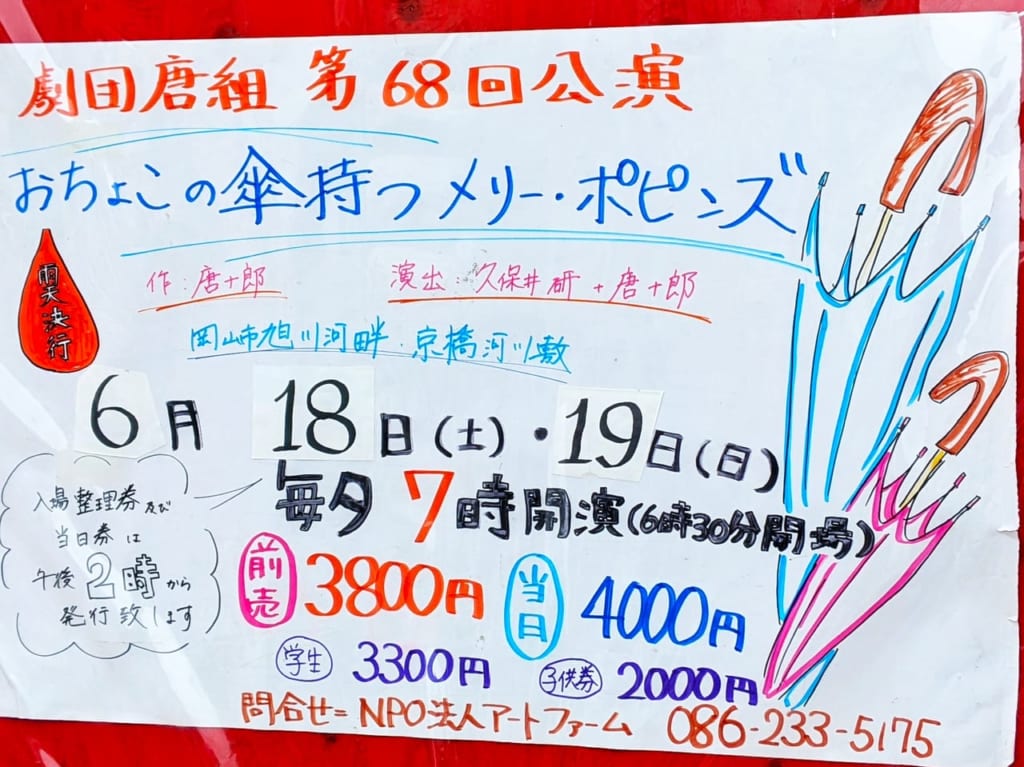 劇団唐組 第68回公演
おちょこの傘持つメリー・ポピンズ
雨天決行
作:唐十郎 演出:久保井研+唐十郎
岡山市旭川河畔・京橋河川敷
6月18日(土)・19日(日)
毎夕7時開演(6時30分開場)
入場整理券及び
当日券は
午後2時から
発行致します
前売 3800円 当日 4000円
学生 3300円 子供券 2000円
問合せ=NPO法人アートファーム 086-233-5175